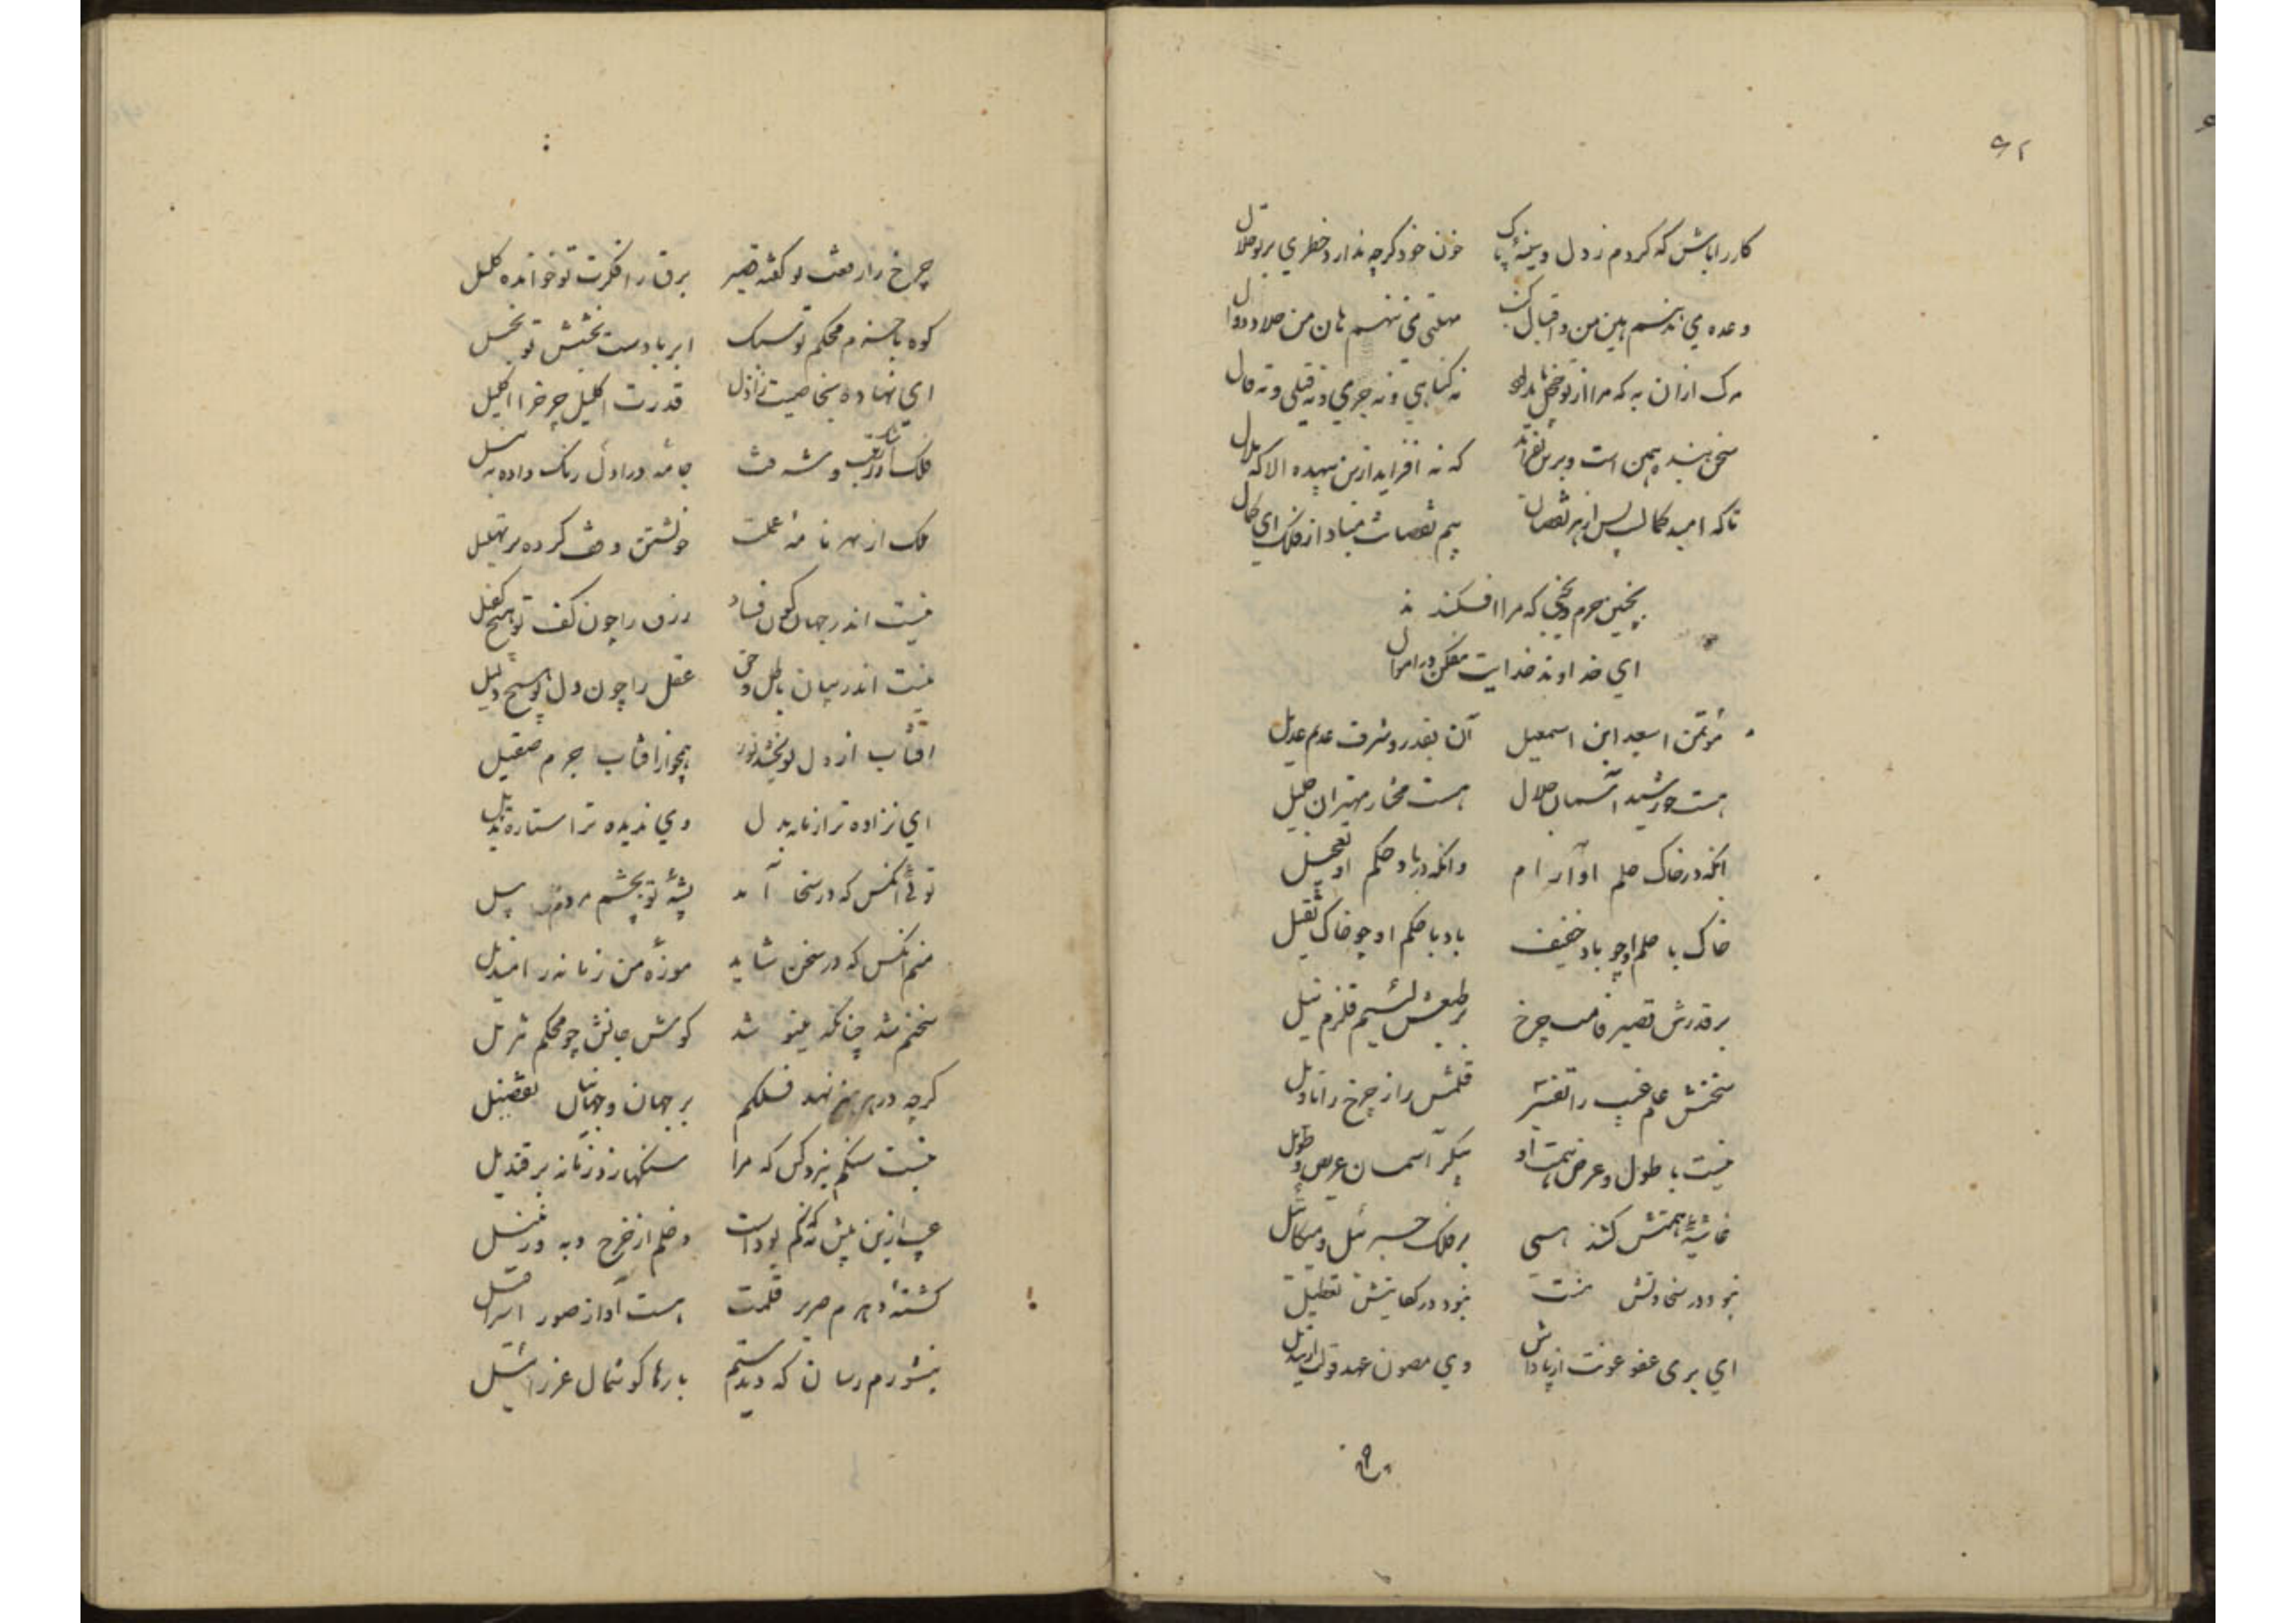 ۹۲
کار را باش که کردم ز دل و سینهٔ پاک خون خود گرچه ندارد خطری بر تو حلال
وعده می نبینم هین من و اقبال مهلتی می ننهم هان من و
مرک ازان به که مرا از تو خجل باید بود نه کناهی و نه جرمی و نه قیلی و نه قال
سخن بنده همین است و برین نفزاید که نه افزاید ازین بیهده الا که ملال
تا که امید کمالست پس از هر نقصان بیم نقصانت مباد از فلک ای کمال
بچنین جرم و که مرا افکند ند
ای خداوند خدایت مفکن در اموال
مؤتمن اسعد ابن اسمعیل آن بقدر و شرف عدیم عدیل
هست خورشید آسمان جلال هست مختار مهتران جلیل
انکه در خاک حلم او آرام وانکه در باد حکم او تعجیل
خاک با حلم او چو باد خفیف باد با حکم او چو خاک ثقیل
بر قدرش قصیر قامت چرخ بر طبعش لئیم قلزم نیل
سخنش علم غیب را تفسیر قلمش راز چرخ را تاویل
نیست با طول و عرض همت او پیکر آسمان عریض و طویل
غاشیهٔ همتش کشند همی بر فلک جبرئیل و میکائیل
نبود در سخاوتش منت نبود در کفایتش تعطیل
ای بری عفو عونت از پاداش وی مصون عهد قولت از تبدیل
چرخ
چرخ را رفعت تو کفته قصیر برق را فکرت تو خوانده کلیل
کوه با حزم محکم تو سبک ابر با دست بخشش تو بخیل
ای نهاده بخاصیت ز ازل قدرت اکلیل چرخ را اکلیل
فلک از رتبت و ستاره شدت جامه در اول رنک داده به نیل
ملک از بهر نامهٔ عملت خویشتن وقف کرده بر تهلیل
نیست اندر جهان کون و فساد رزق را چون کف تو هیچ کفیل
نیست اندر بیان باطل و حق عقل را چون دل تو هیچ دلیل
آفتاب از دل تو بخشد نور همچو از آفتاب جرم صقیل
ای نزاده ترا زمانه بدل وی ندیده ترا ستاره بدیل
توئی آنکس که در سخا آمد پشهٔ تو بچشم مردم پیل
منم آنکس که در سخن شاید موزهٔ من زمانه را مندیل
سخنم شد چنانکه بنیوشد کوش جانش چو محکم تنزیل
کرچه در هر هنر نهد فلکم بر جهان و جهانیان تفضیل
نیست سنکم بنزد کس که مرا سنکها زد زمانه بر قندیل
عیب ازین بیش که کم بوداست دخلم از خرج ده به ورزنیل
کشتهٔ دهرم صریر قلمت هست آواز صور اسرافیل
بنشورم رسان که دیدستم بارها کوشمال عزرائیل